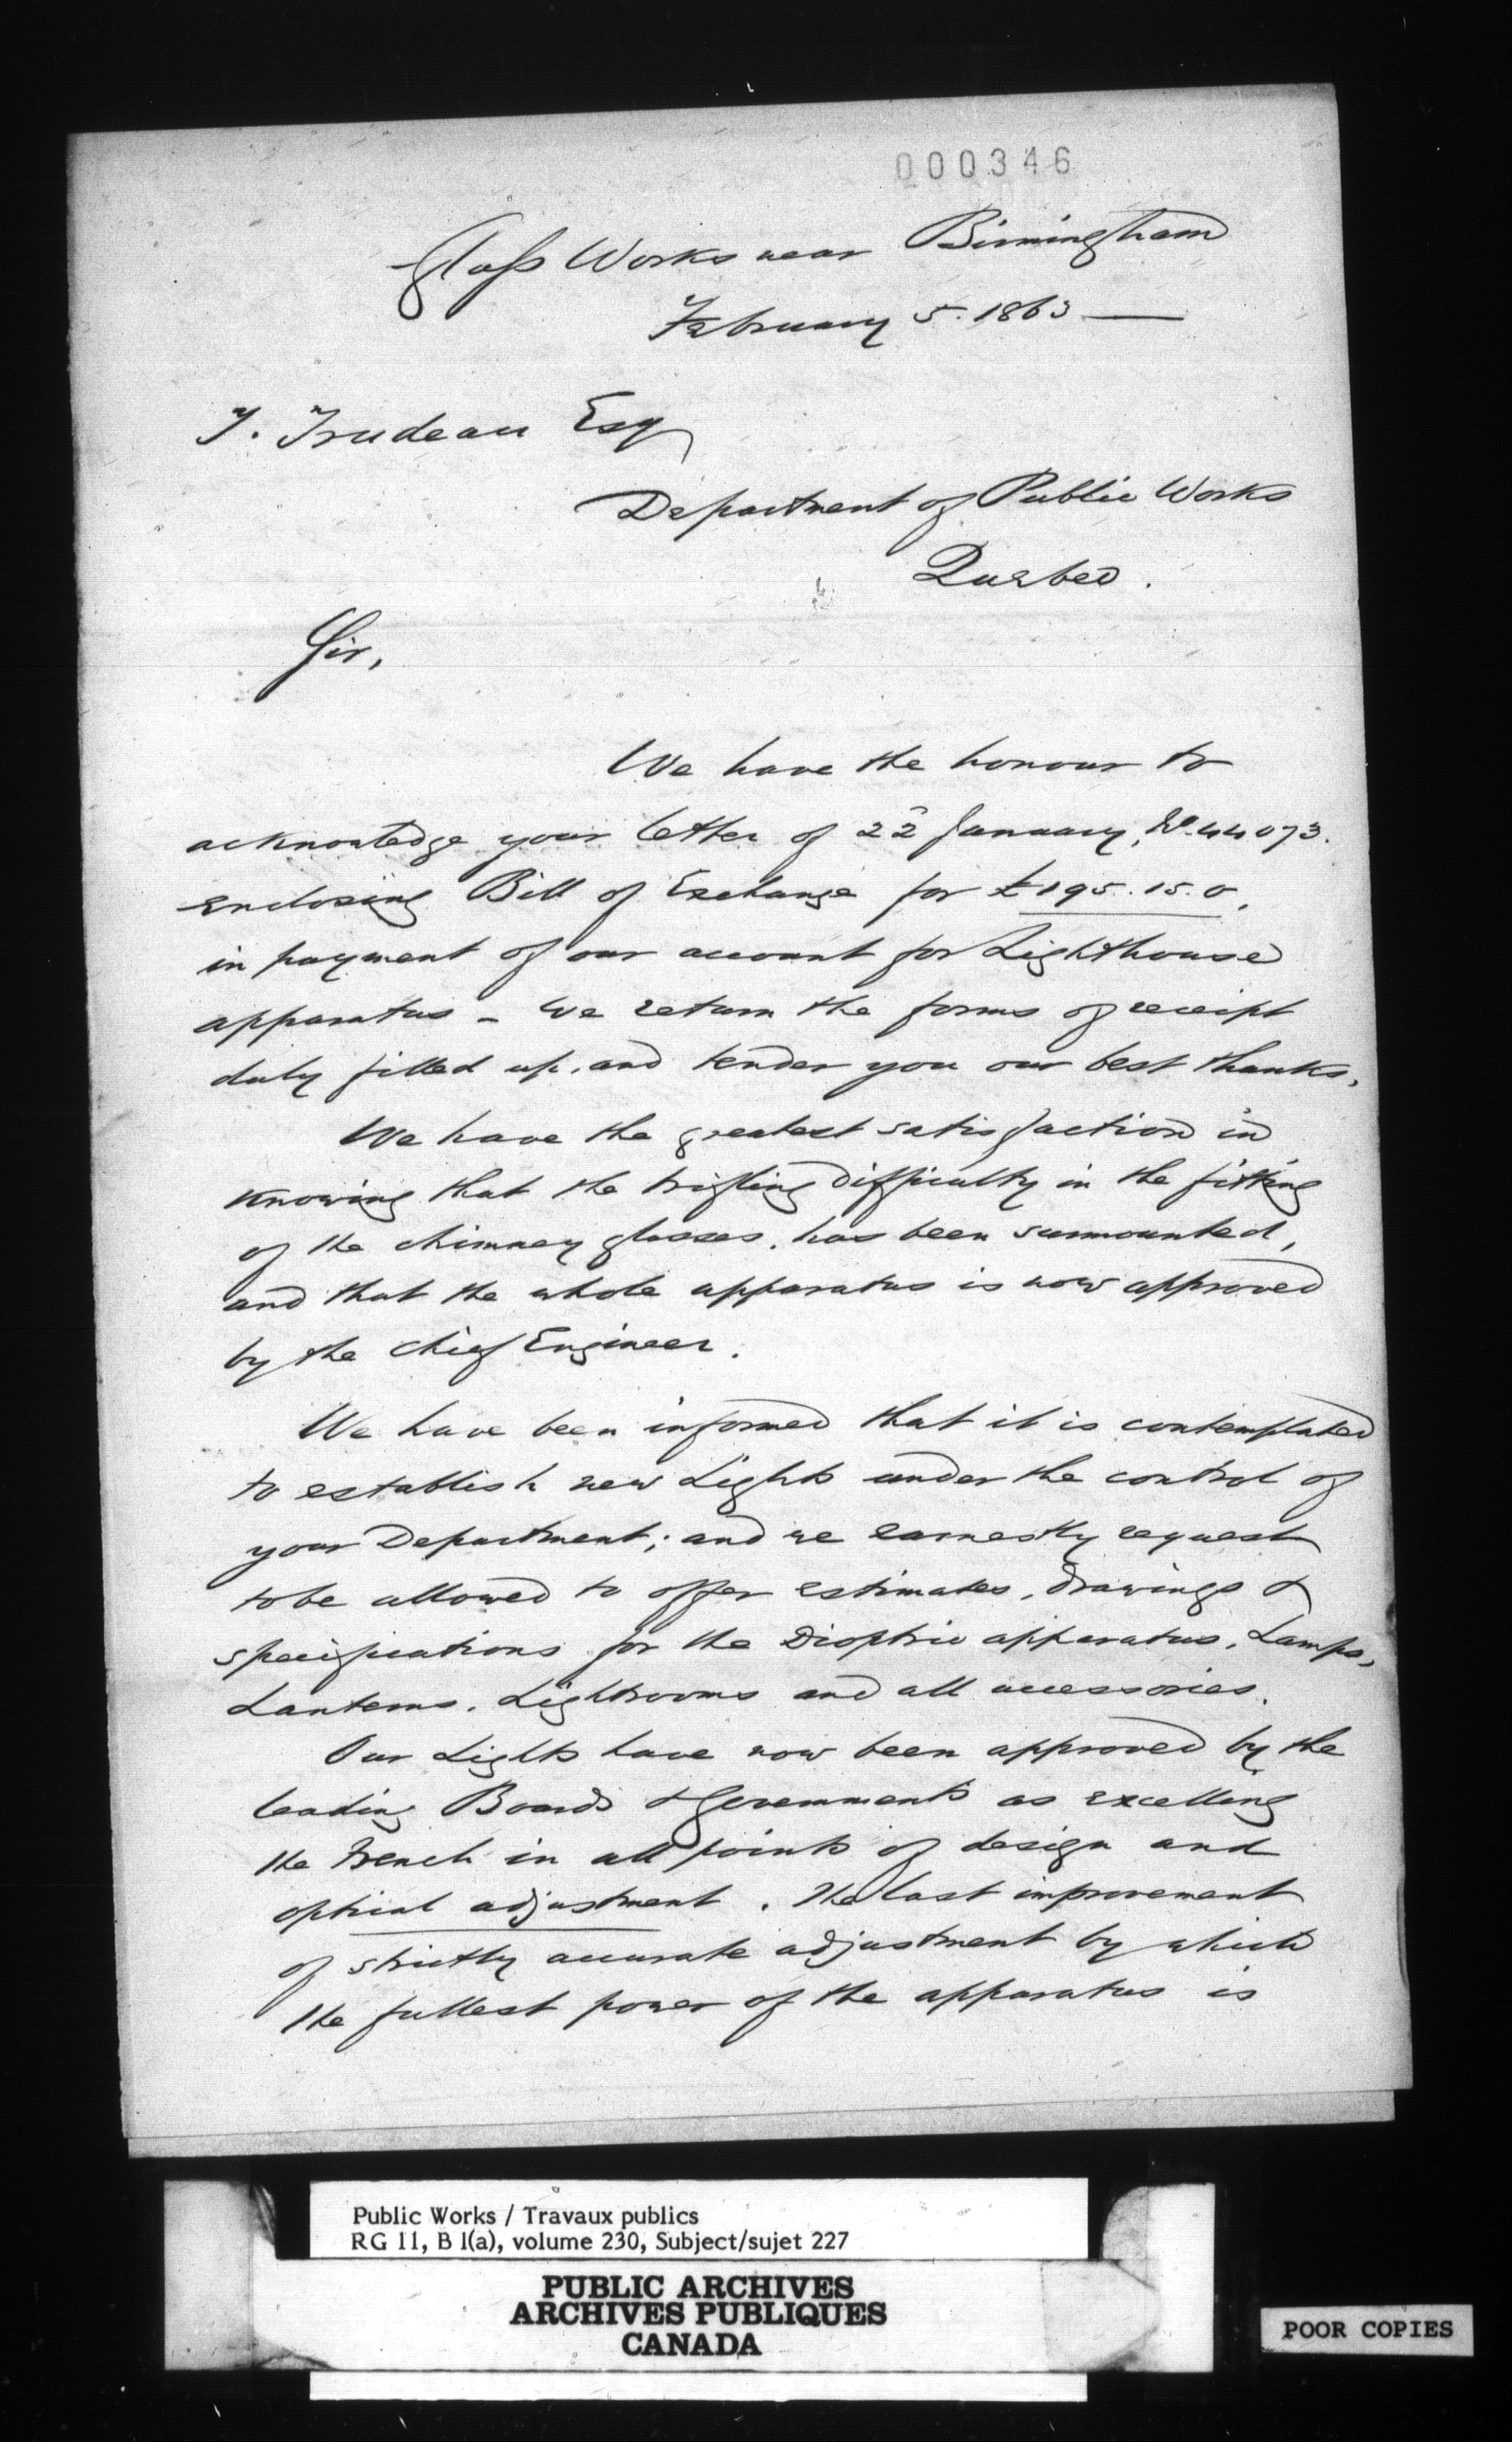 000346
Glass Works near Birmingham
February 5. 1863 —
T. Trudeau Esq
Department of Public Works
Quebec.
Sir,
We have the honour to
acknowledge your letter of 22 January, No. 44073.
enclosing Bill of Exchange for £195.15.0,
in payment of our account for Lighthouse
apparatus – We return the forms of receipt
duly filled up, and tender you our best thanks.
We have the greatest satisfaction in
knowing that the trifling difficulty in the fitting
of the chimney glasses, has been surmounted,
and that the whole apparatus is now approved
by the chief Engineer.
We have been informed that it is contemplated
to establish new Lights under the control of
your Department; and we earnestly request
to be allowed to offer estimates, drawings &
specifications for the Dioptric apparatus, Lamps,
Lanterns, Lightrooms and all accessories.
Our Lights have now been approved by the
leading Boards & Governments as excelling
the French in all points of design and
optical adjustment. The last improvement
of strictly accurate adjustment by which
the fullest power of the apparatus is
Public Works / Travaux publics
RG 11, B 1(a), volume 230, Subject/sujet 227
PUBLIC ARCHIVES
ARCHIVES PUBLIQUES
CANADA
POOR COPIES